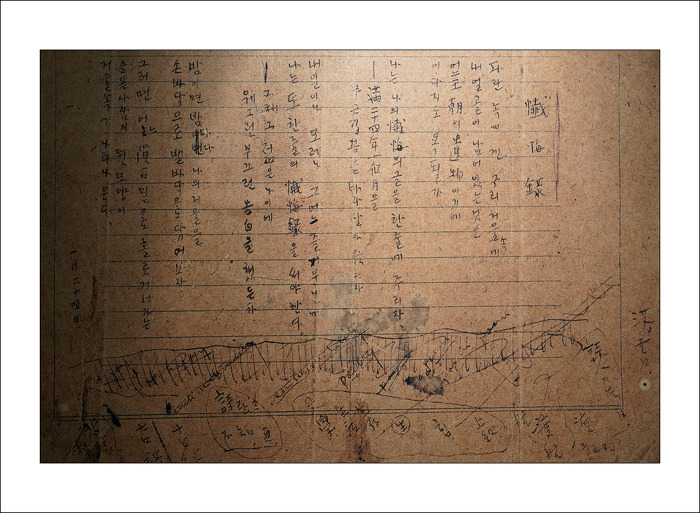 懺悔錄
파란 녹이 낀 구리거울속에
내얼골이 남어있는것은
어느 王朝의遺物이기에
이다지도 욕될가
나는 나의 懺悔의글을 한줄에 주리자
—滿二十四年一個月을
무슨 깁븜을 바라 살아 왔든가
내일이나 모레나 그어느 즐거운날에
나는 또 한줄의 懺悔錄을 써야한다.
—그때 그 젊은 나이에
웨그런 부끄런 告白을 했든가.
밤이면 밤마다 나의 거울을
손바닥으로 발바닥으로 닦어보자
그러면 어느 隕石밑으로 홀로거러가는
슬픈사람의 뒷모양이
거울속에 나타나온다
一月二十四日